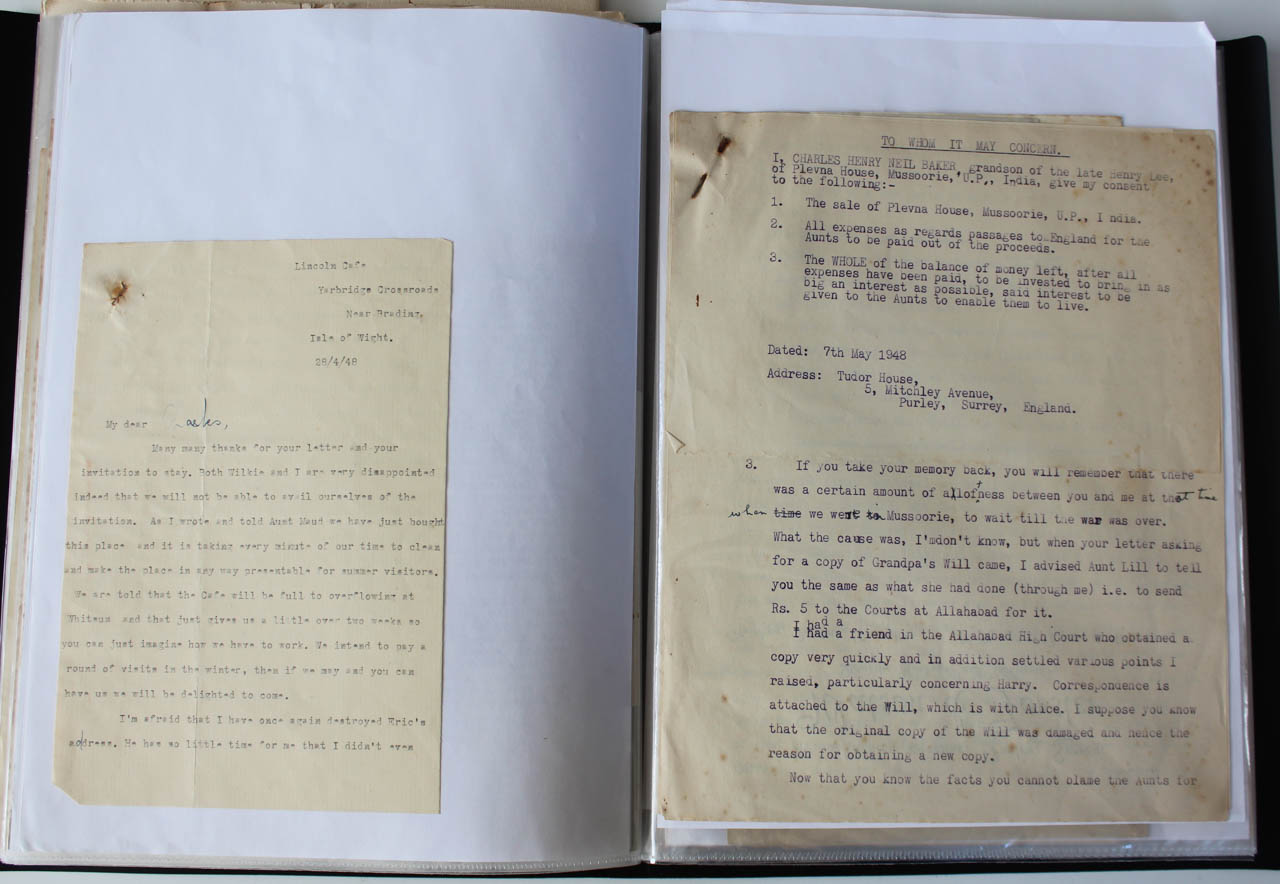 Lincoln Cafe
Yarbridge Crossroads
Near Brading,
Isle of Wight.
28/4/48
My dear
Many many thanks for your letter and your
invitation to stay. Both Wilkie and I are very disappointed
indeed that we will not be able to avail ourselves of the
invitation. As I wrote and told Aunt Maud we have just bought
this place and it is taking every minute of our time to clean
and make the place in any way presentable for summer visitors.
We are told that the Cafe will be full to overflowing at
Whitsun and that just gives us a little over two weeks so
you can just imagine how we have to work. We intend to pay a
round of visits in the winter, then if we may and you can
have us we will be delighted to come.
I'm afraid that I have once again destroyed Eric's
address. He has so little time for me that I didn't even
TO WHOM IT MAY CONCERN.
I, CHARLES HENRY NEIL BAKER, grandson of the late Henry Lee,
of Plevna House, Mussoorie, U.P., India, give my consent
to the following:-
1. The sale of Plevna House, Mussoorie, U.P., I ndia.
2. All expenses as regards passages to England for the
Aunts to be paid out of the proceeds.
3. The WHOLE of the balance of money left, after all
expenses have been paid, to be invested to bring in as
big an interest as possible, said interest to be
given to the Aunts to enable them to live.
Dated: 7th May 1948
Address: Tudor House,
5, Mitchley Avenue,
Purley, Surrey, England.
3. If you take your memory back, you will remember that there
was a certain amount of allofness between you and me at that time
when time we went to Mussoorie, to wait till the war was over.
What the cause was, I'mdon't know, but when your letter asking
for a copy of Grandpa's Will came, I advised Aunt Lill to tell
you the same as what she had done (through me) i.e. to send
Rs. 5 to the Courts at Allahabad for it.
I had a
I had a friend in the Allahabad High Court who obtained a
copy very quickly and in addition settled various points I
raised, particularly concerning Harry. Correspondence is
attached to the Will, which is with Alice. I suppose you know
that the original copy of the Will was damaged and hence the
reason for obtaining a new copy.
Now that you know the facts you cannot blame the Aunts for